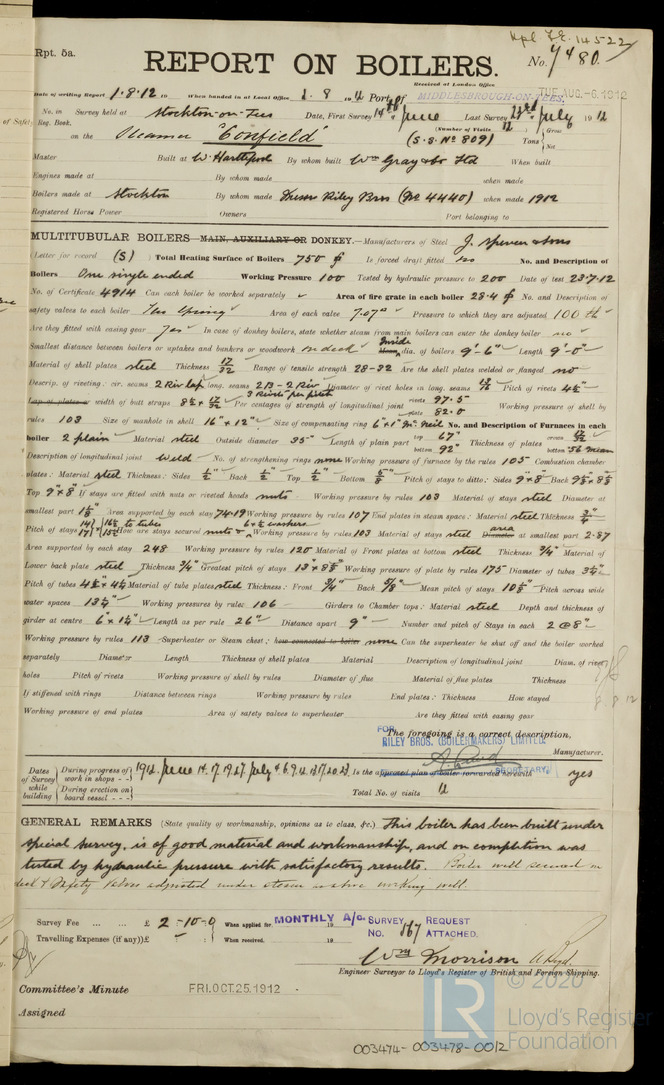 Rpt. 5a.
Rpt F.E. 14522
REPORT ON BOILERS.
No. 7480
Date of writing Report 1.8.12 19 When handed in at Local Office 1.8 1912 Port of MIDDLESBROUGH-ON-TEES.
Received at London Office TUE. AUG. -6. 1912
No. in Reg. Book. Survey held at Stockton-on-Tees Date, First Survey 14th June Last Survey 23rd July 1912
on the Steamer "Confield" (S.S. No 809) (Number of Visits 12) Tons Gross Net
Master Built at W. Hartlepool By whom built Wm Gray & Co Ltd When built
Engines made at By whom made when made
Boilers made at Stockton By whom made Riley Bros (No 4440) when made 1912
Registered Horse Power Owners Port belonging to
MULTITUBULAR BOILERS MAIN, AUXILIARY OR DONKEY.—Manufacturers of Steel J. Spencer & Sons
(Letter for record (S) ) Total Heating Surface of Boilers 750 Is forced draft fitted no No. and Description of
Boilers One single ended Working Pressure 100 Tested by hydraulic pressure to 200 Date of test 23.7.12
No. of Certificate 4914 Can each boiler be worked separately Area of fire grate in each boiler 28.4 No. and Description of
safety valves to each boiler Two Spring Area of each valve 7.07 Pressure to which they are adjusted 100
Are they fitted with easing gear yes In case of donkey boilers, state whether steam from main boilers can enter the donkey boiler no
Smallest distance between boilers or uptakes and bunkers or woodwork on deck Inside dia. of boilers 9'-6" Length 9'-0"
Material of shell plates steel Thickness 17/32 Range of tensile strength 28-32 Are the shell plates welded or flanged no
Descrip. of riveting: cir. seams 2 Riv lap long. seams 2 B - 2 Riv Diameter of rivet holes in long. seams 13/16 Pitch of rivets 4½"
Lap of plates or width of butt straps 8½ × 17/32 3 Rivets per pitch Per centages of strength of longitudinal joint rivets 97.5 plate 82.0 Working pressure of shell by
rules 103 Size of manhole in shell 16" × 12" Size of compensating ring 6" × 1" McNeil No. and Description of Furnaces in each
boiler 2 plain Material steel Outside diameter 35" Length of plain part top 67" bottom 92" Thickness of plates crown 17/32 bottom .56 mean
Description of longitudinal joint Weld No. of strengthening rings none Working pressure of furnace by the rules 105 Combustion chamber
plates: Material steel Thickness: Sides ½" Back ½" Top ½" Bottom Pitch of stays to ditto: Sides 9" × 8" Back 9½" × 8½
Top 9" × 8" If stays are fitted with nuts or riveted heads nuts Working pressure by rules 103 Material of stays steel Diameter at
smallest part 1⅛" Area supported by each stay 74.19 Working pressure by rules 107 End plates in steam space: Material steel Thickness ¾"
Pitch of stays How are stays secured nuts & washers Working pressure by rules 103 Material of stays steel area Diameter at smallest part 2.87
Area supported by each stay 248 Working pressure by rules 120 Material of Front plates at bottom steel Thickness ¾" Material of
Lower back plate steel Thickness ¾" Greatest pitch of stays 13" × 8½ Working pressure of plate by rules 175 Diameter of tubes 3¼"
Pitch of tubes 4½" × 4½ Material of tube plates steel Thickness: Front ¾" Back ⅝" Mean pitch of stays 10⅛" Pitch across wide
water spaces 13¼" Working pressures by rules 106 Girders to Chamber tops: Material steel Depth and thickness of
girder at centre 6" × 1¼" Length as per rule 26" Distance apart 9" Number and pitch of Stays in each 2 @ 8"
Working pressure by rules 113 Superheater or Steam chest; how connected to boiler none Can the superheater be shut off and the boiler worked
separately Diameter Length Thickness of shell plates Material Description of longitudinal joint Diam. of rivet
holes Pitch of rivets Working pressure of shell by rules Diameter of flue Material of flue plates Thickness
If stiffened with rings Distance between rings Working pressure by rules End plates: Thickness How stayed
Working pressure of end plates Area of safety valves to superheater Are they fitted with easing gear
8.8.12
The foregoing is a correct description,
FOR RILEY BROS. (BOILERMAKERS) LIMITED. Manufacturer.
SECRETARY.
Dates of Survey while building
During progress of work in shops - - 1912. June 14. 17. 19. 27. July 4. 6. 9. 12. 13. 17. 20. 23. Is the approved plan of boiler forwarded herewith yes
During erection on board vessel - - - Total No. of visits 12
GENERAL REMARKS (State quality of workmanship, opinions as to class, &c.) This boiler has been built under
special survey, is of good material and workmanship, and on completion was
tested by hydraulic pressure with satisfactory results. Boiler well secured on
deck & Safety Valves adjusted under steam working well.
Survey Fee ... ... £ 2-10-0 When applied for MONTHLY A/c. 19 SURVEY REQUEST
Travelling Expenses (if any) £ When received, 19 NO. 867 ATTACHED.
Wm Morrison
Engineer Surveyor to Lloyd's Register of British and Foreign Shipping.
Committee's Minute FRI. OCT. 25. 1912
Assigned
© 2020
LR Lloyd's Register
Foundation
003474-003478-0012